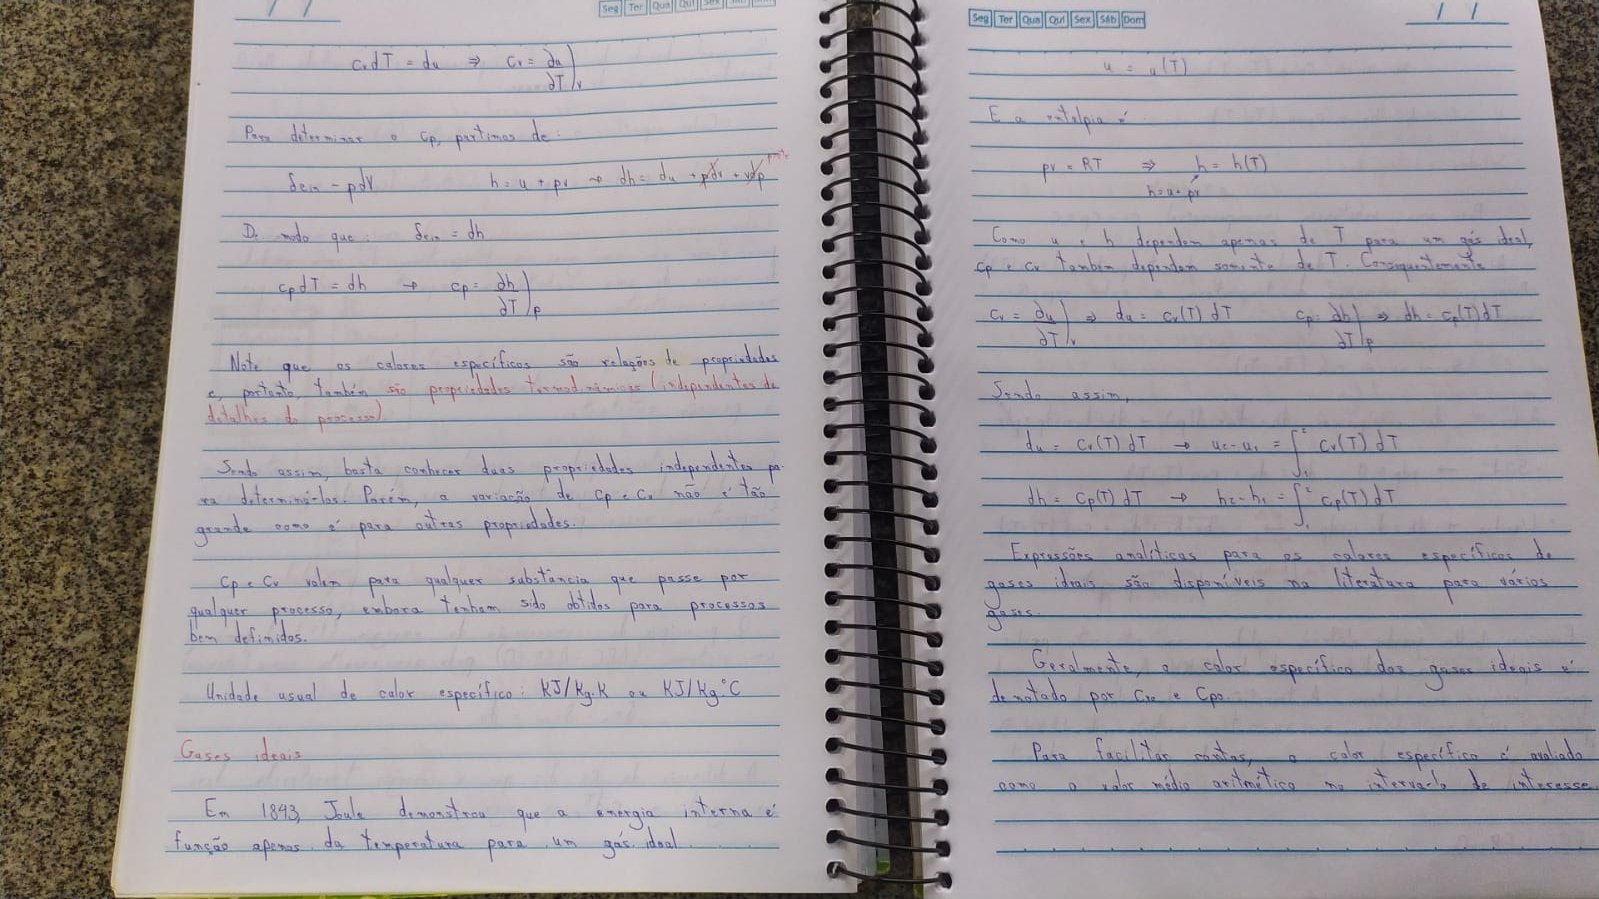 Seg Ter Qua Qui Sex Sáb Dom
cv dT = du ⇒ cv = ∂u/∂T)v
Para determinar o cp, partimos de:
δein - pdV h = u + pv → dh = du + pdv + vdp
De modo que: δein = dh
cp dT = dh → cp = ∂h/∂T)p
Note que os calores específicos são relações de propriedades
e, portanto, também são propriedades termodinâmicas (independentes de
detalhes do processo)
Sendo assim, basta conhecer duas propriedades independentes pa-
ra determiná-los. Porém, a variação de cp e cv não é tão
grande como é para outras propriedades.
Cp e Cv valem para qualquer substância que passe por
qualquer processo, embora tenham sido obtidos para processos
bem definidos.
Unidade usual de calor específico: KJ/Kg.K ou KJ/Kg°C
Gases ideais
Em 1843, Joule demonstrou que a energia interna é
função apenas da temperatura para um gás ideal
Seg Ter Qua Qui Sex Sáb Dom
u = u(T)
E a entalpia é
pv = RT ⇒ h = h(T)
h = u + pv
Como u e h dependem apenas de T para um gás ideal,
cp e cv também dependem somente de T. Consequentemente
cv = ∂u/∂T)v ⇒ du = cv(T) dT cp = ∂h/∂T)p ⇒ dh = cp(T) dT
Sendo assim,
du = cv(T) dT → u2 - u1 = ∫₁² cv(T) dT
dh = cp(T) dT → h2 - h1 = ∫₁² cp(T) dT
Expressões analíticas para os calores específicos de
gases ideais são disponíveis na literatura para vários
gases.
Geralmente, o calor específico dos gases ideais é
denotado por Cv0 e Cp0.
Para facilitar contas, o calor específico é avaliado
como o valor médio aritmético no intervalo de interesse